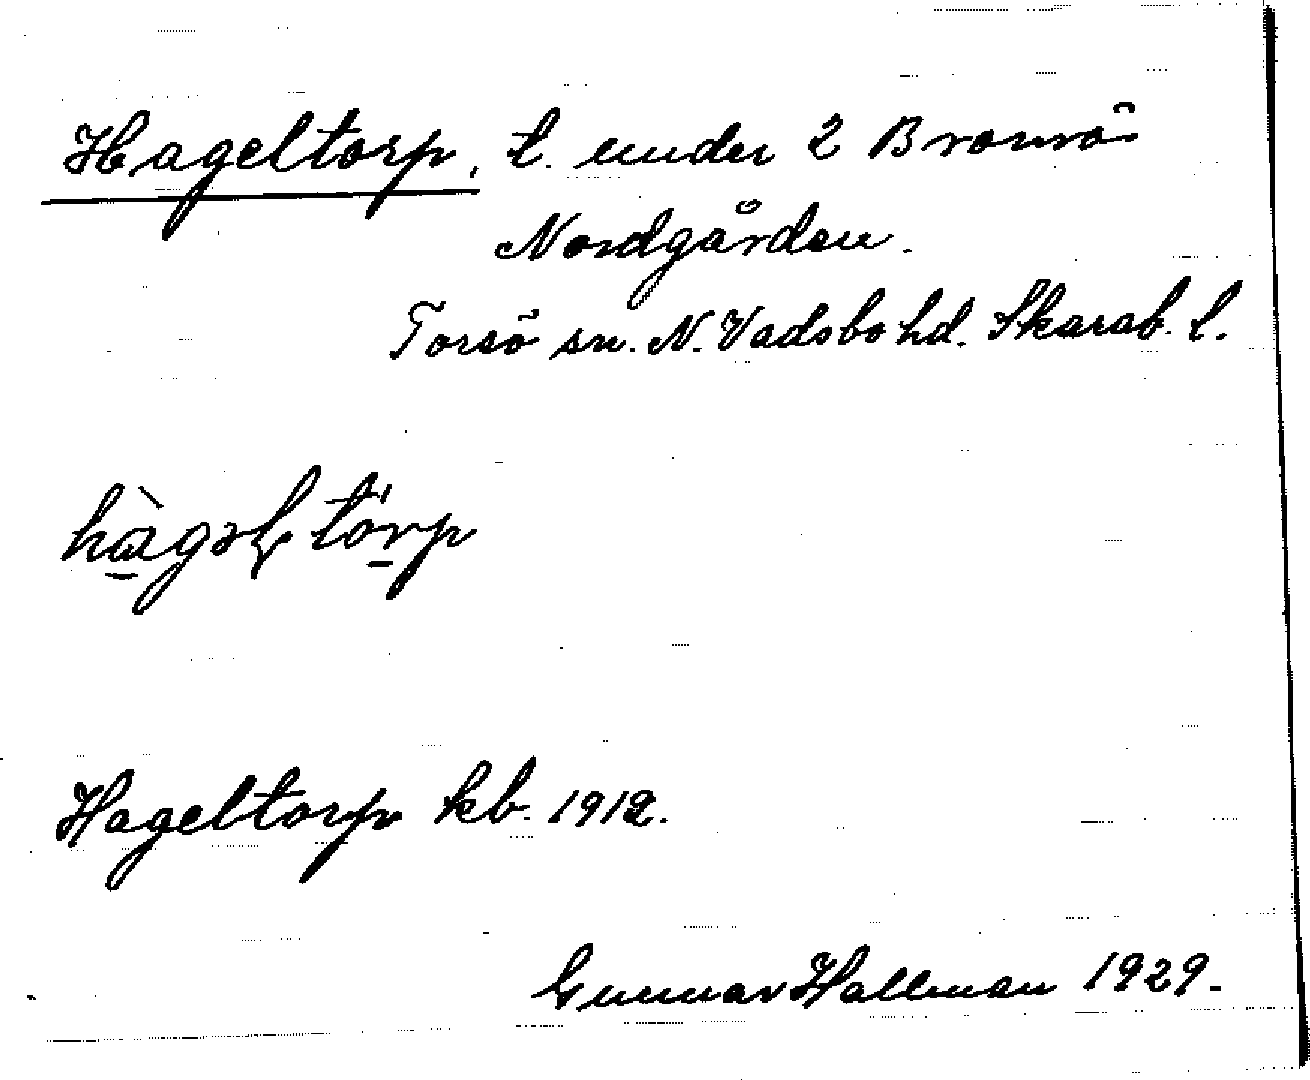 Hageltorp, t. under 2 Bromö
Nordgården.
Torsö sn. N. Vadsbo hd. Skarab. l.
hàgəltórp
Hageltorp kb. 1912.
Gunnar Hallman 1929.